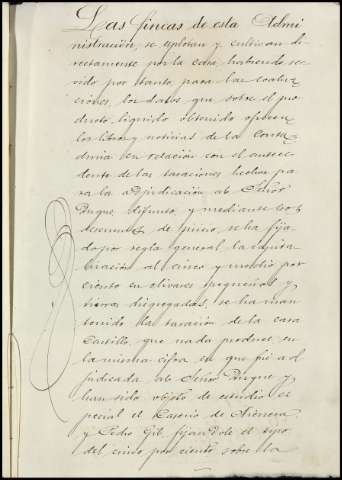 Las fincas de esta Admi
nistración, se explotan y cultivan di
rectamente por la casa, habiendo ser
vido por tanto, para las evalua
ciones, los datos que sobre el pro
ducto líquido obtenido ofrecen
los libros y noticias de la Conta
duria en relación con el antece
dente de las tasaciones hechas pa
ra la adjudicación al Señor
Duque difunto, y mediante los
de juicio, se ha fija
do por regla general la capita
lización al cinco y medio por
ciento en olivares pequeños y
tierras disgregadas, se ha man
tenido la tasación de la casa
Castillo que nada produce en
la misma cifra en que fué ad
judicada al Señor Duque y
han sido objeto de estudio es
pecial el Caserio de
y Pedro Gil fijandole el tipo
del cinco por ciento sobre la